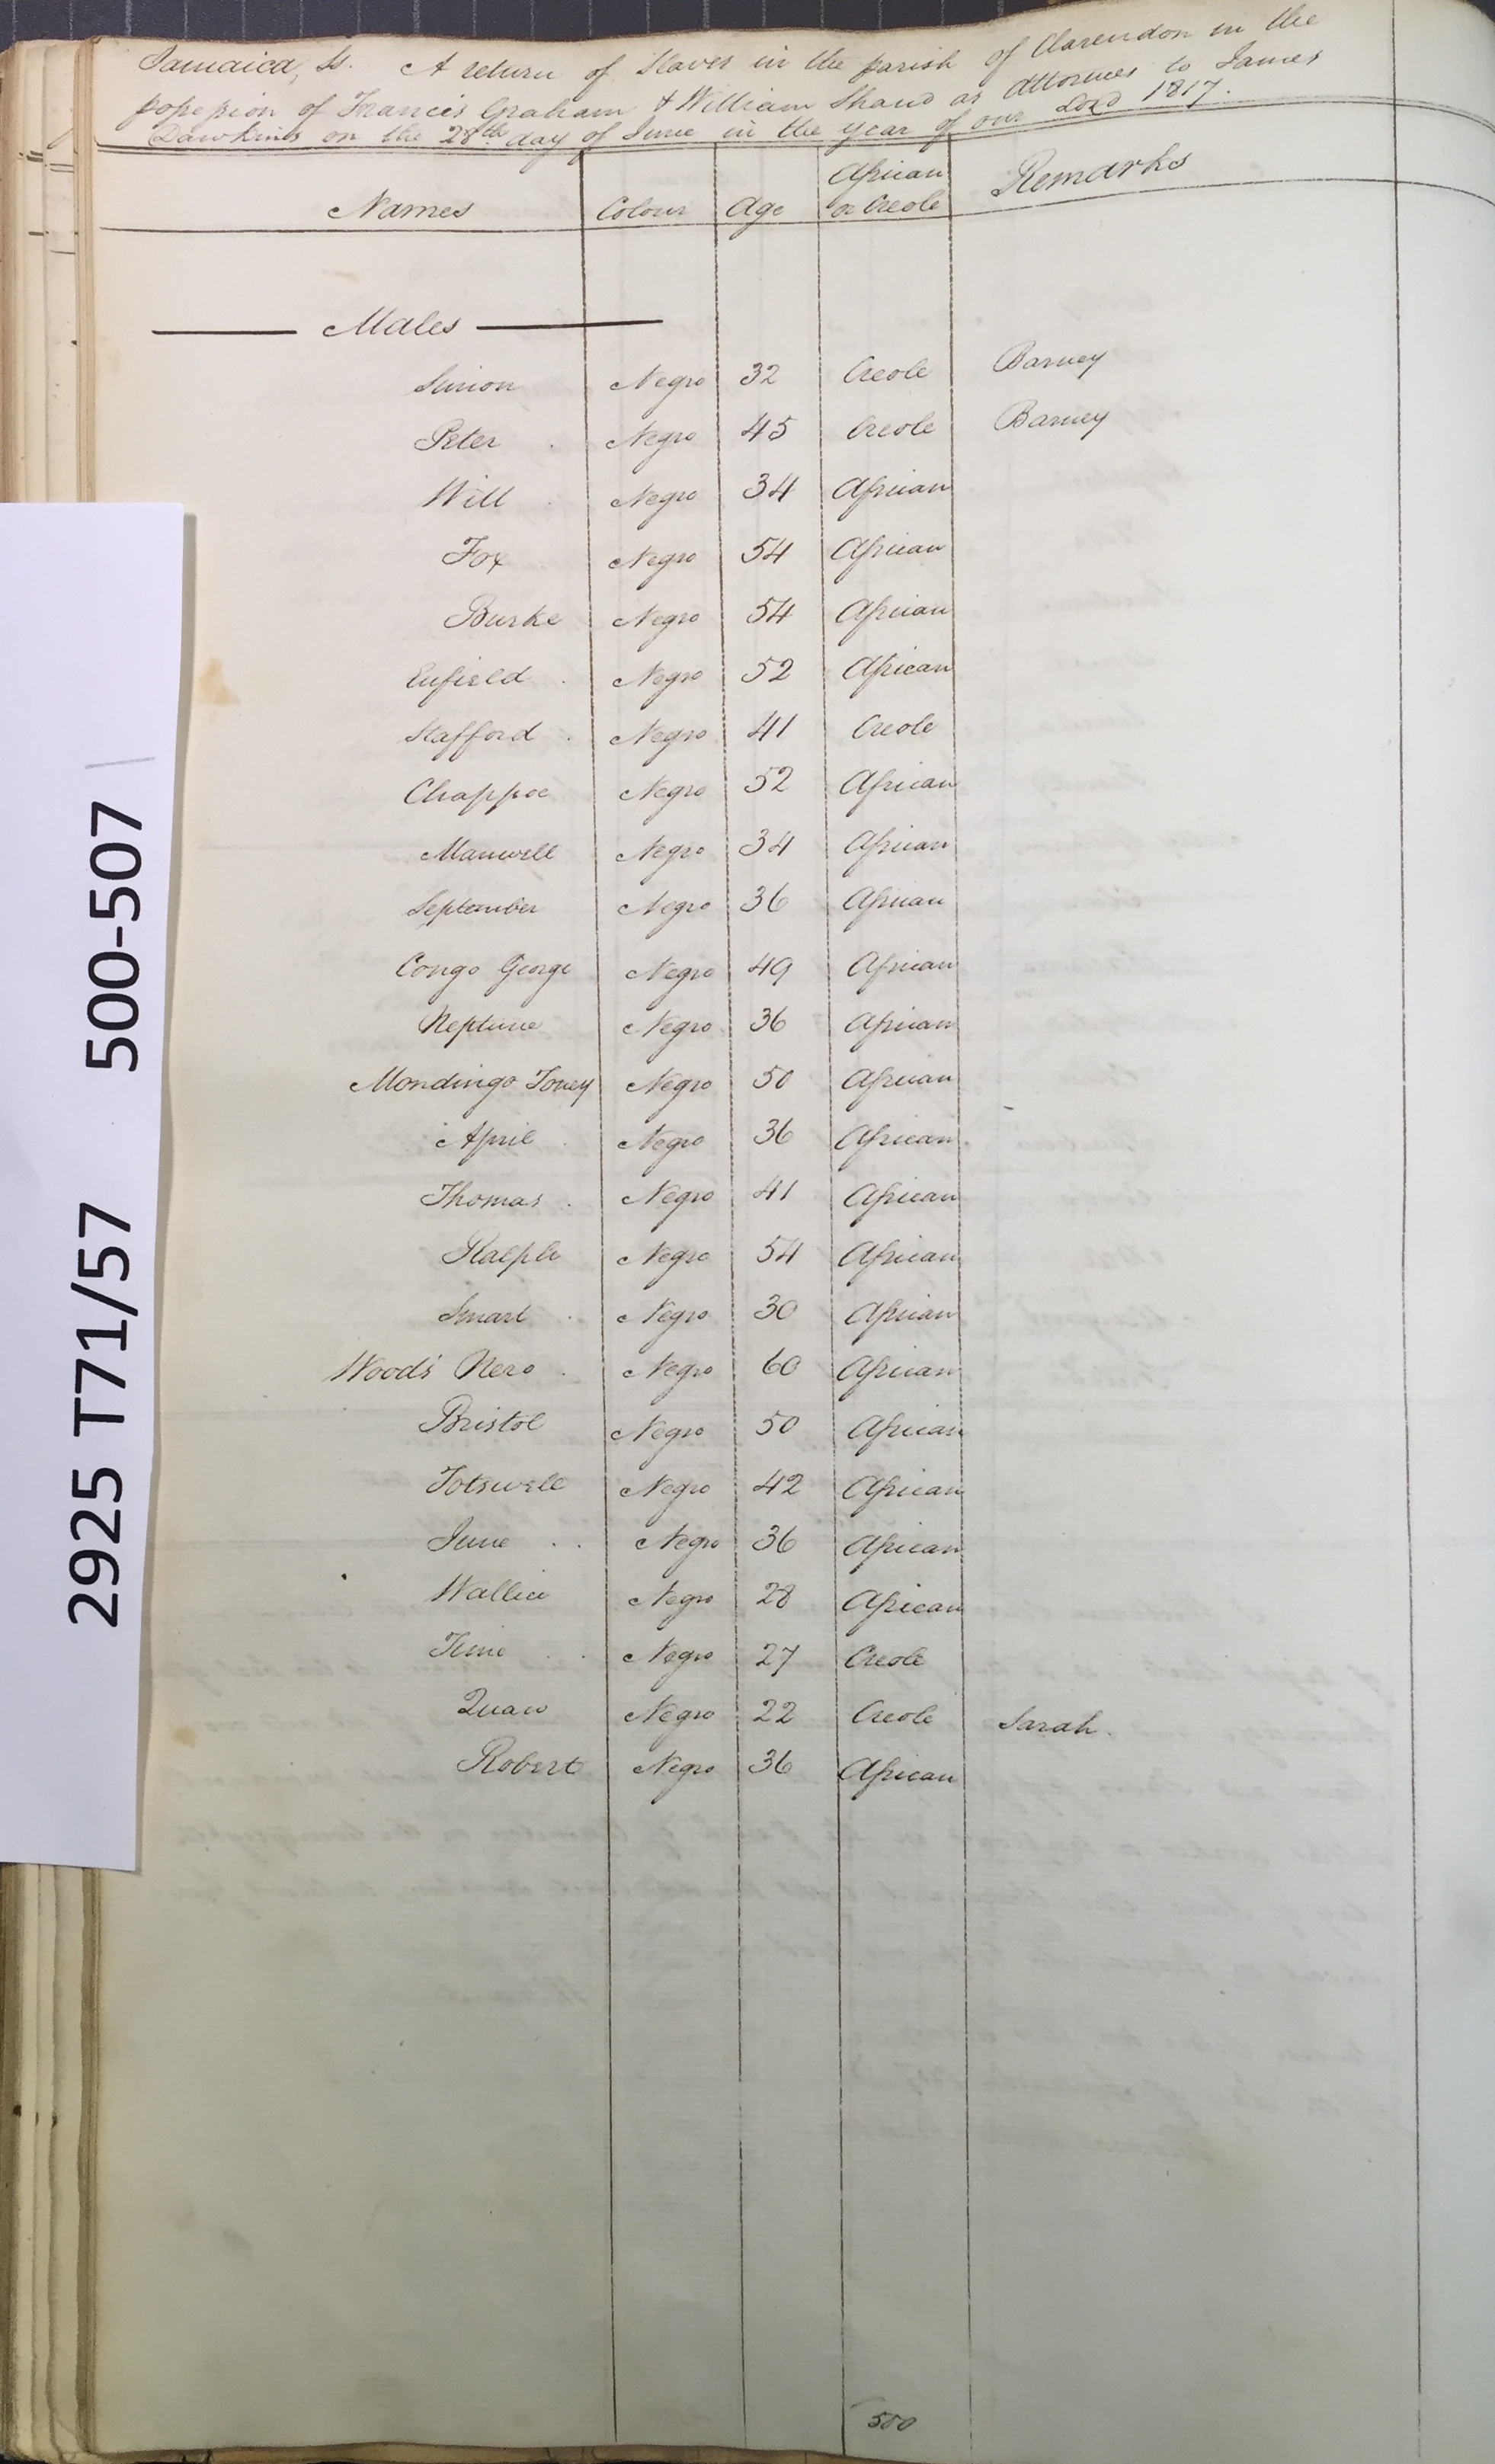 Jamaica, Ss. A return of Slaves in the parish of Clarendon in the
possession of Francis Graham & William Shand as Attornies to James
Dawkins on the 28th day of June in the year of our Lord 1817.
Names Colour Age African or Creole Remarks
Males
Simon Negro 32 Creole Barney
Peter Negro 45 Creole Barney
Will Negro 34 African
Fox Negro 54 African
Burke Negro 54 African
Enfield Negro 52 African
Stafford Negro 41 Creole
Chappoe Negro 52 African
Manwell Negro 34 African
September Negro 36 African
Congo George Negro 49 African
Neptune Negro 36 African
Mondingo Toney Negro 50 African
April Negro 36 African
Thomas Negro 41 African
Ralph Negro 54 African
Smart Negro 30 African
Woods Nero Negro 60 African
Bristol Negro 50 African
Totswell Negro 42 African
June Negro 36 African
Wallice Negro 28 African
Time Negro 27 Creole
Quaw Negro 22 Creole Sarah.
Robert Negro 36 African
500
2925 T71/57 500-507